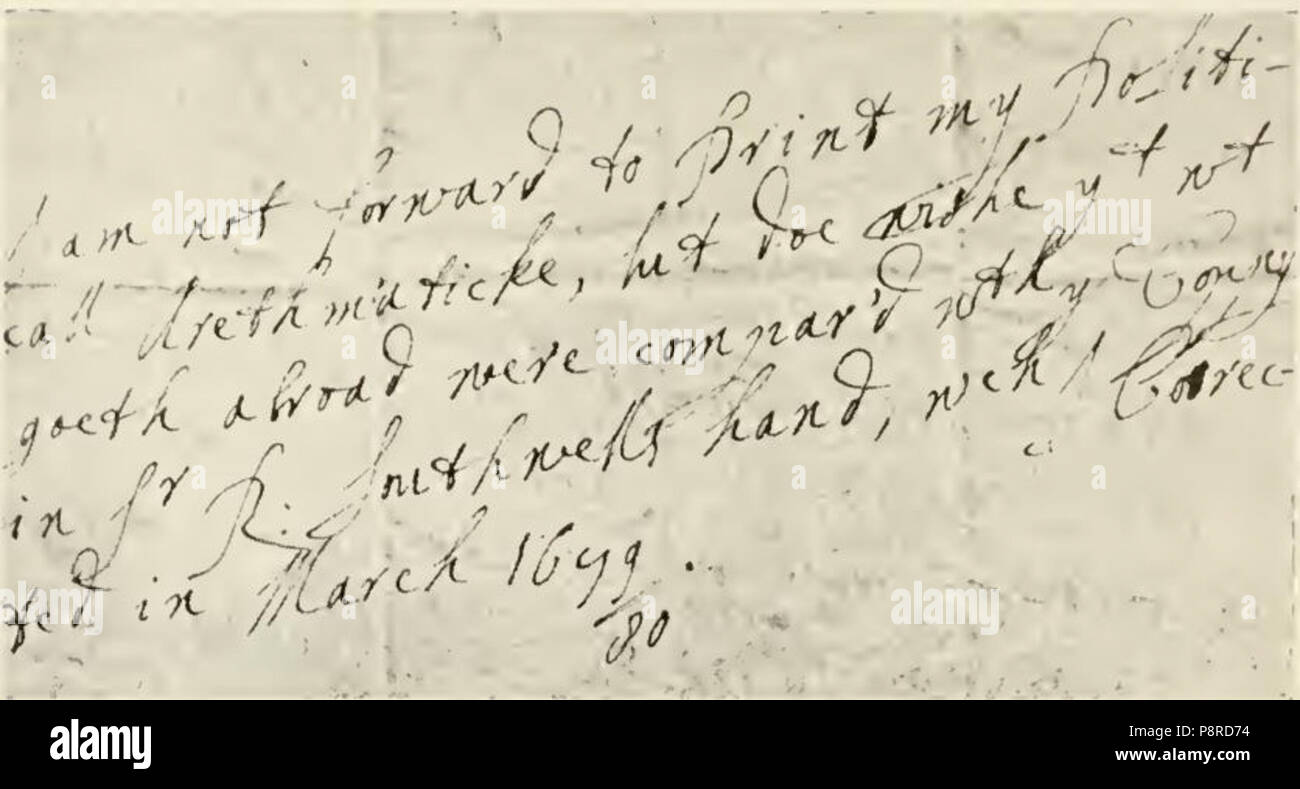 I am not forward to Print my Politi-
call Arethmaticke, but doe wishe yt wt
goeth abroad were compar'd wth ye Coppy
in Sr R. Southwells hand, wch I Correc-
ted in March 1679/80.
alamy
alamy
Image ID: P8RD74
www.alamy.com